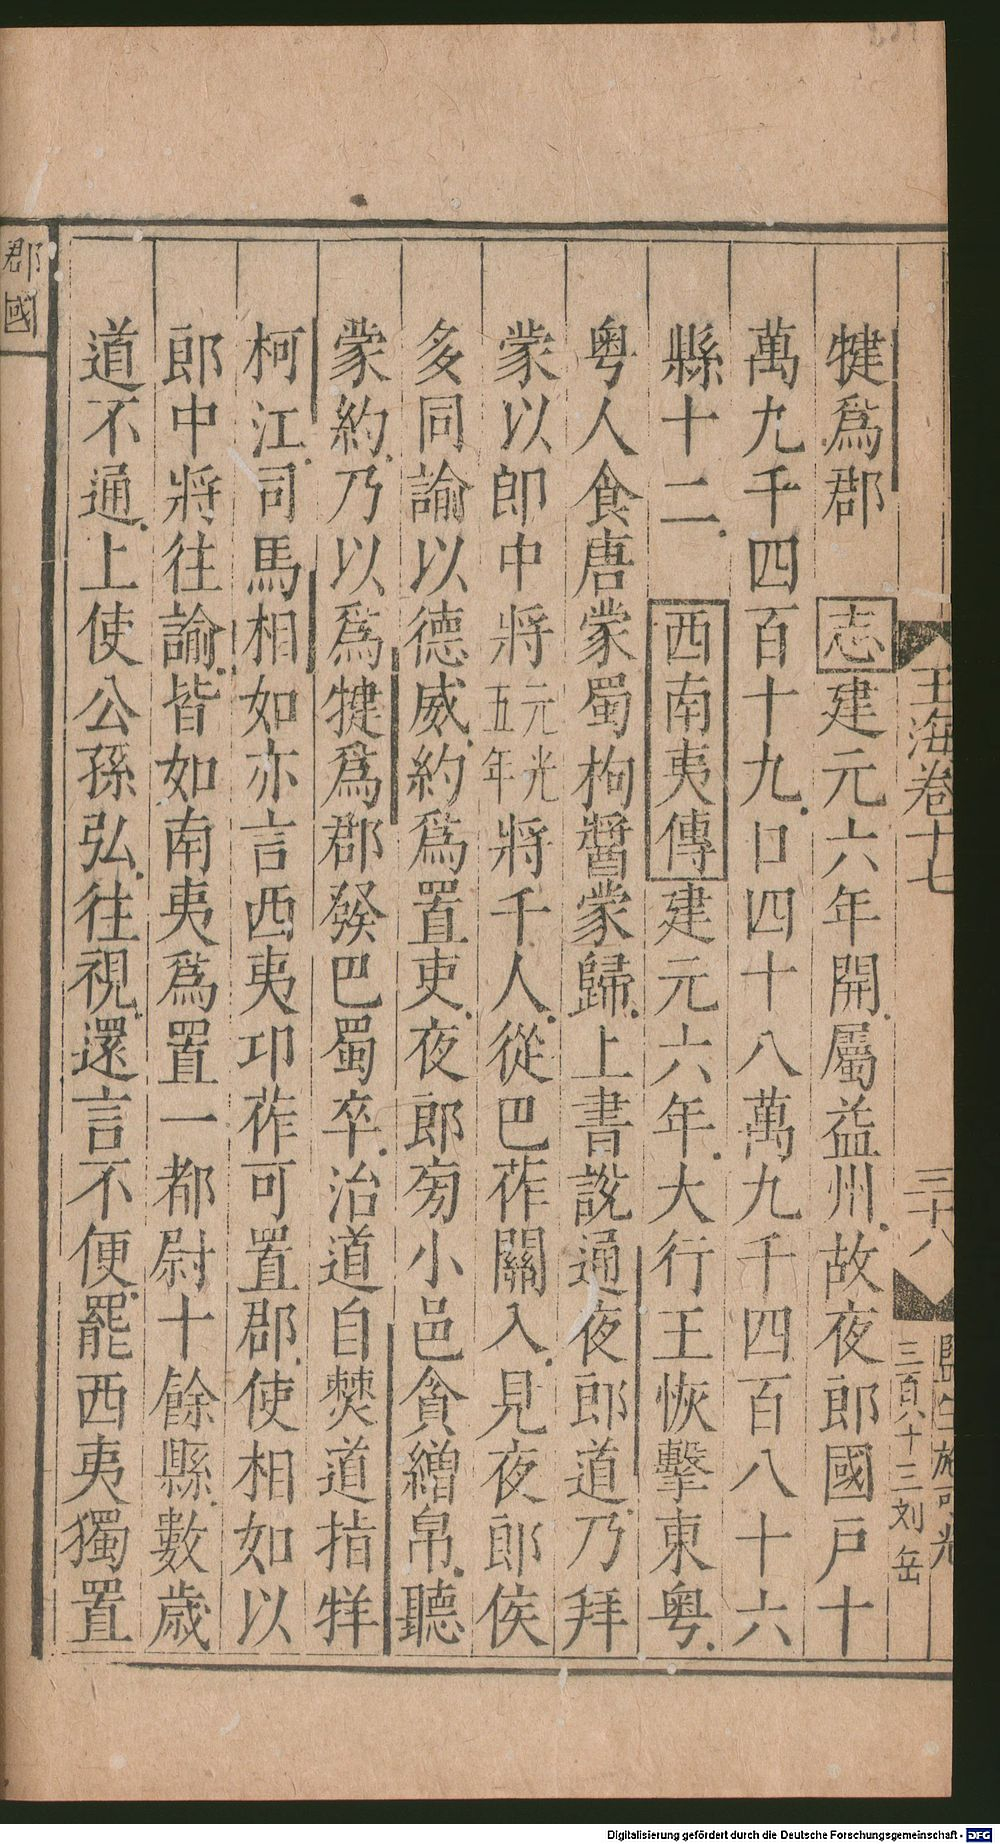 玉海卷十七
三十八
三百六十三刘岳
犍爲郡 志建元六年開屬益州故夜郎國戶十
萬九千四百十九口四十八萬九千四百八十六
縣十二 西南夷傳建元六年大行王恢擊東粵
粵人食唐蒙蜀枸醬蒙歸上書說通夜郎道乃拜
蒙以郎中將元光五年將千人從巴莋關入見夜郎侯
多同諭以德威約爲置吏夜郎旁小邑貪繒帛聽
蒙約乃以爲犍爲郡發巴蜀卒治道自僰道指牂
柯江司馬相如亦言西夷邛莋可置郡使相如以
郎中將往諭皆如南夷爲置一都尉十餘縣數歲
道不通上使公孫弘往視還言不便罷西夷獨置
郡國
Digitalisierung gefördert durch die Deutsche Forschungsgemeinschaft - DFG